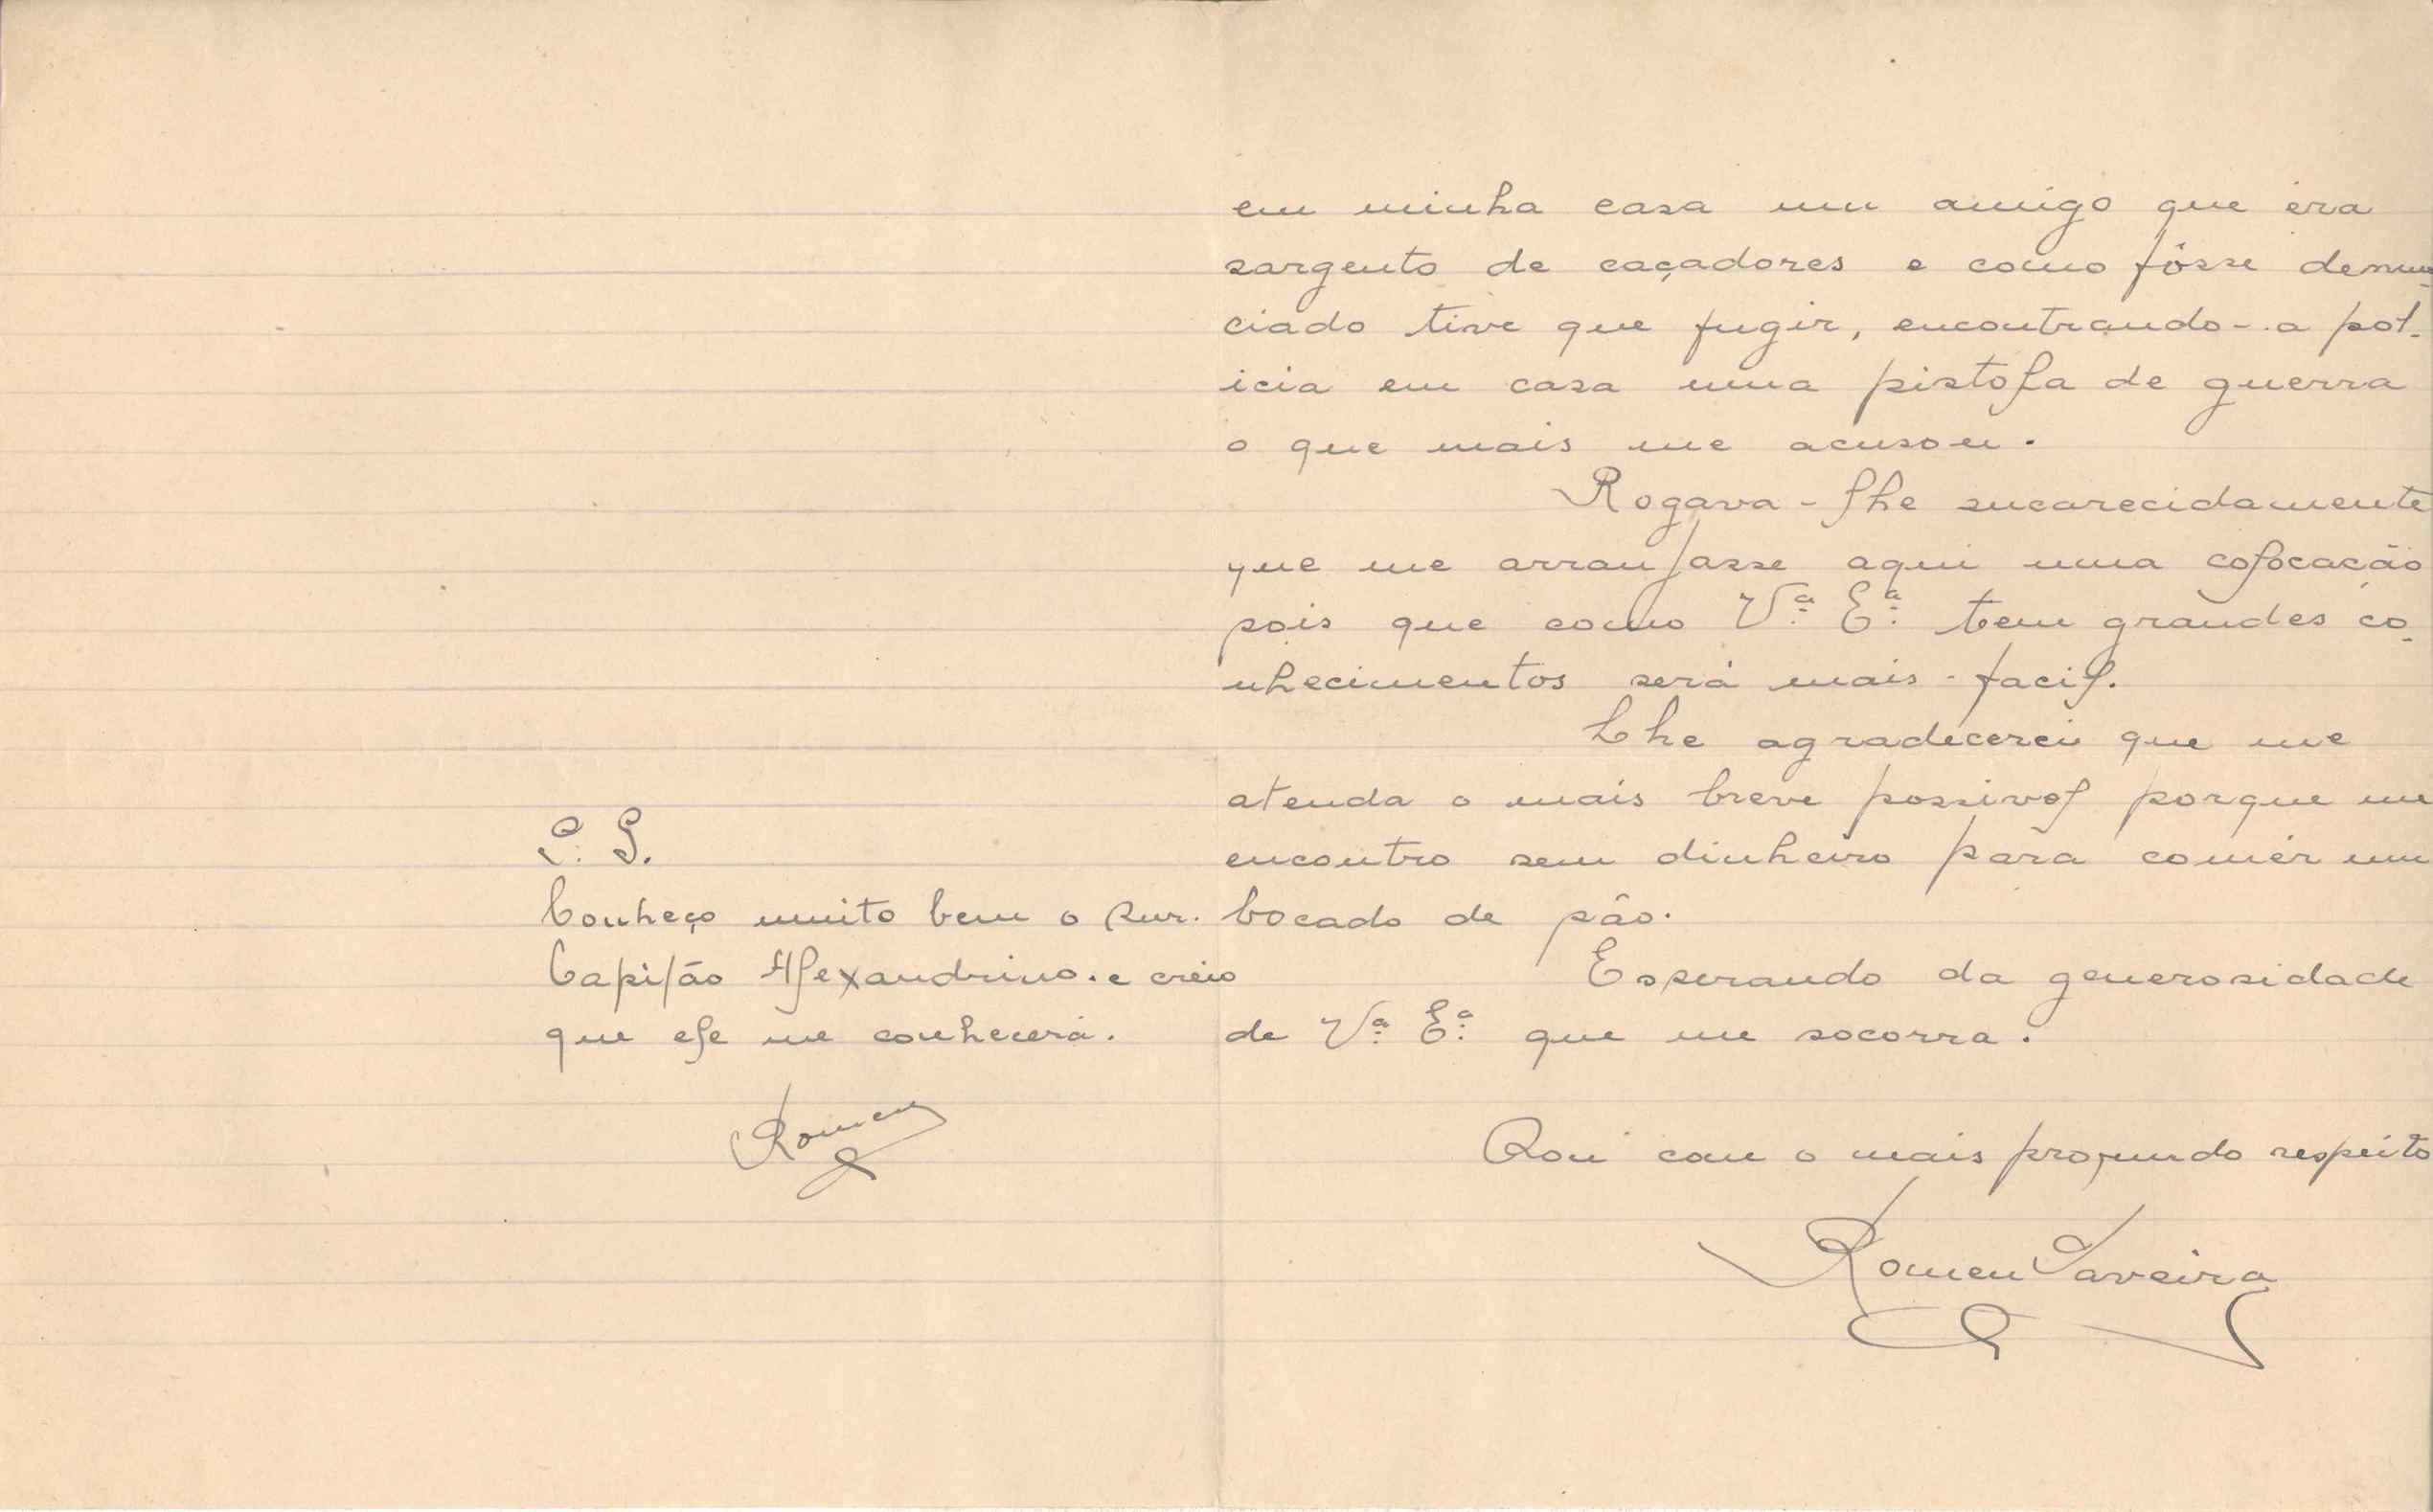 em minha casa um amigo que éra
sargento de caçadores e como fôsse denun-
ciado tive que fugir, encontrando-a pol-
icia em casa uma pistola de guerra
o que mais me acusou.
Rogava-lhe encarecidamente
que me arranjasse aqui uma colocação
pois que como Vª. Eª. tem grandes co-
nhecimentos será mais facil.
Lhe agradecerei que me
atenda o mais breve possivel porque me
encontro sem dinheiro para comêr um
bocado de pão.
Esperando da generosidade
de Vª. Eª. que me socorra.
Sou com o mais profundo respeito
Romeu Taveira
P. S.
Conheço muito bem o Snr.
Capitão Alexandrino. e creio
que ele me conhecerá.
Romeu